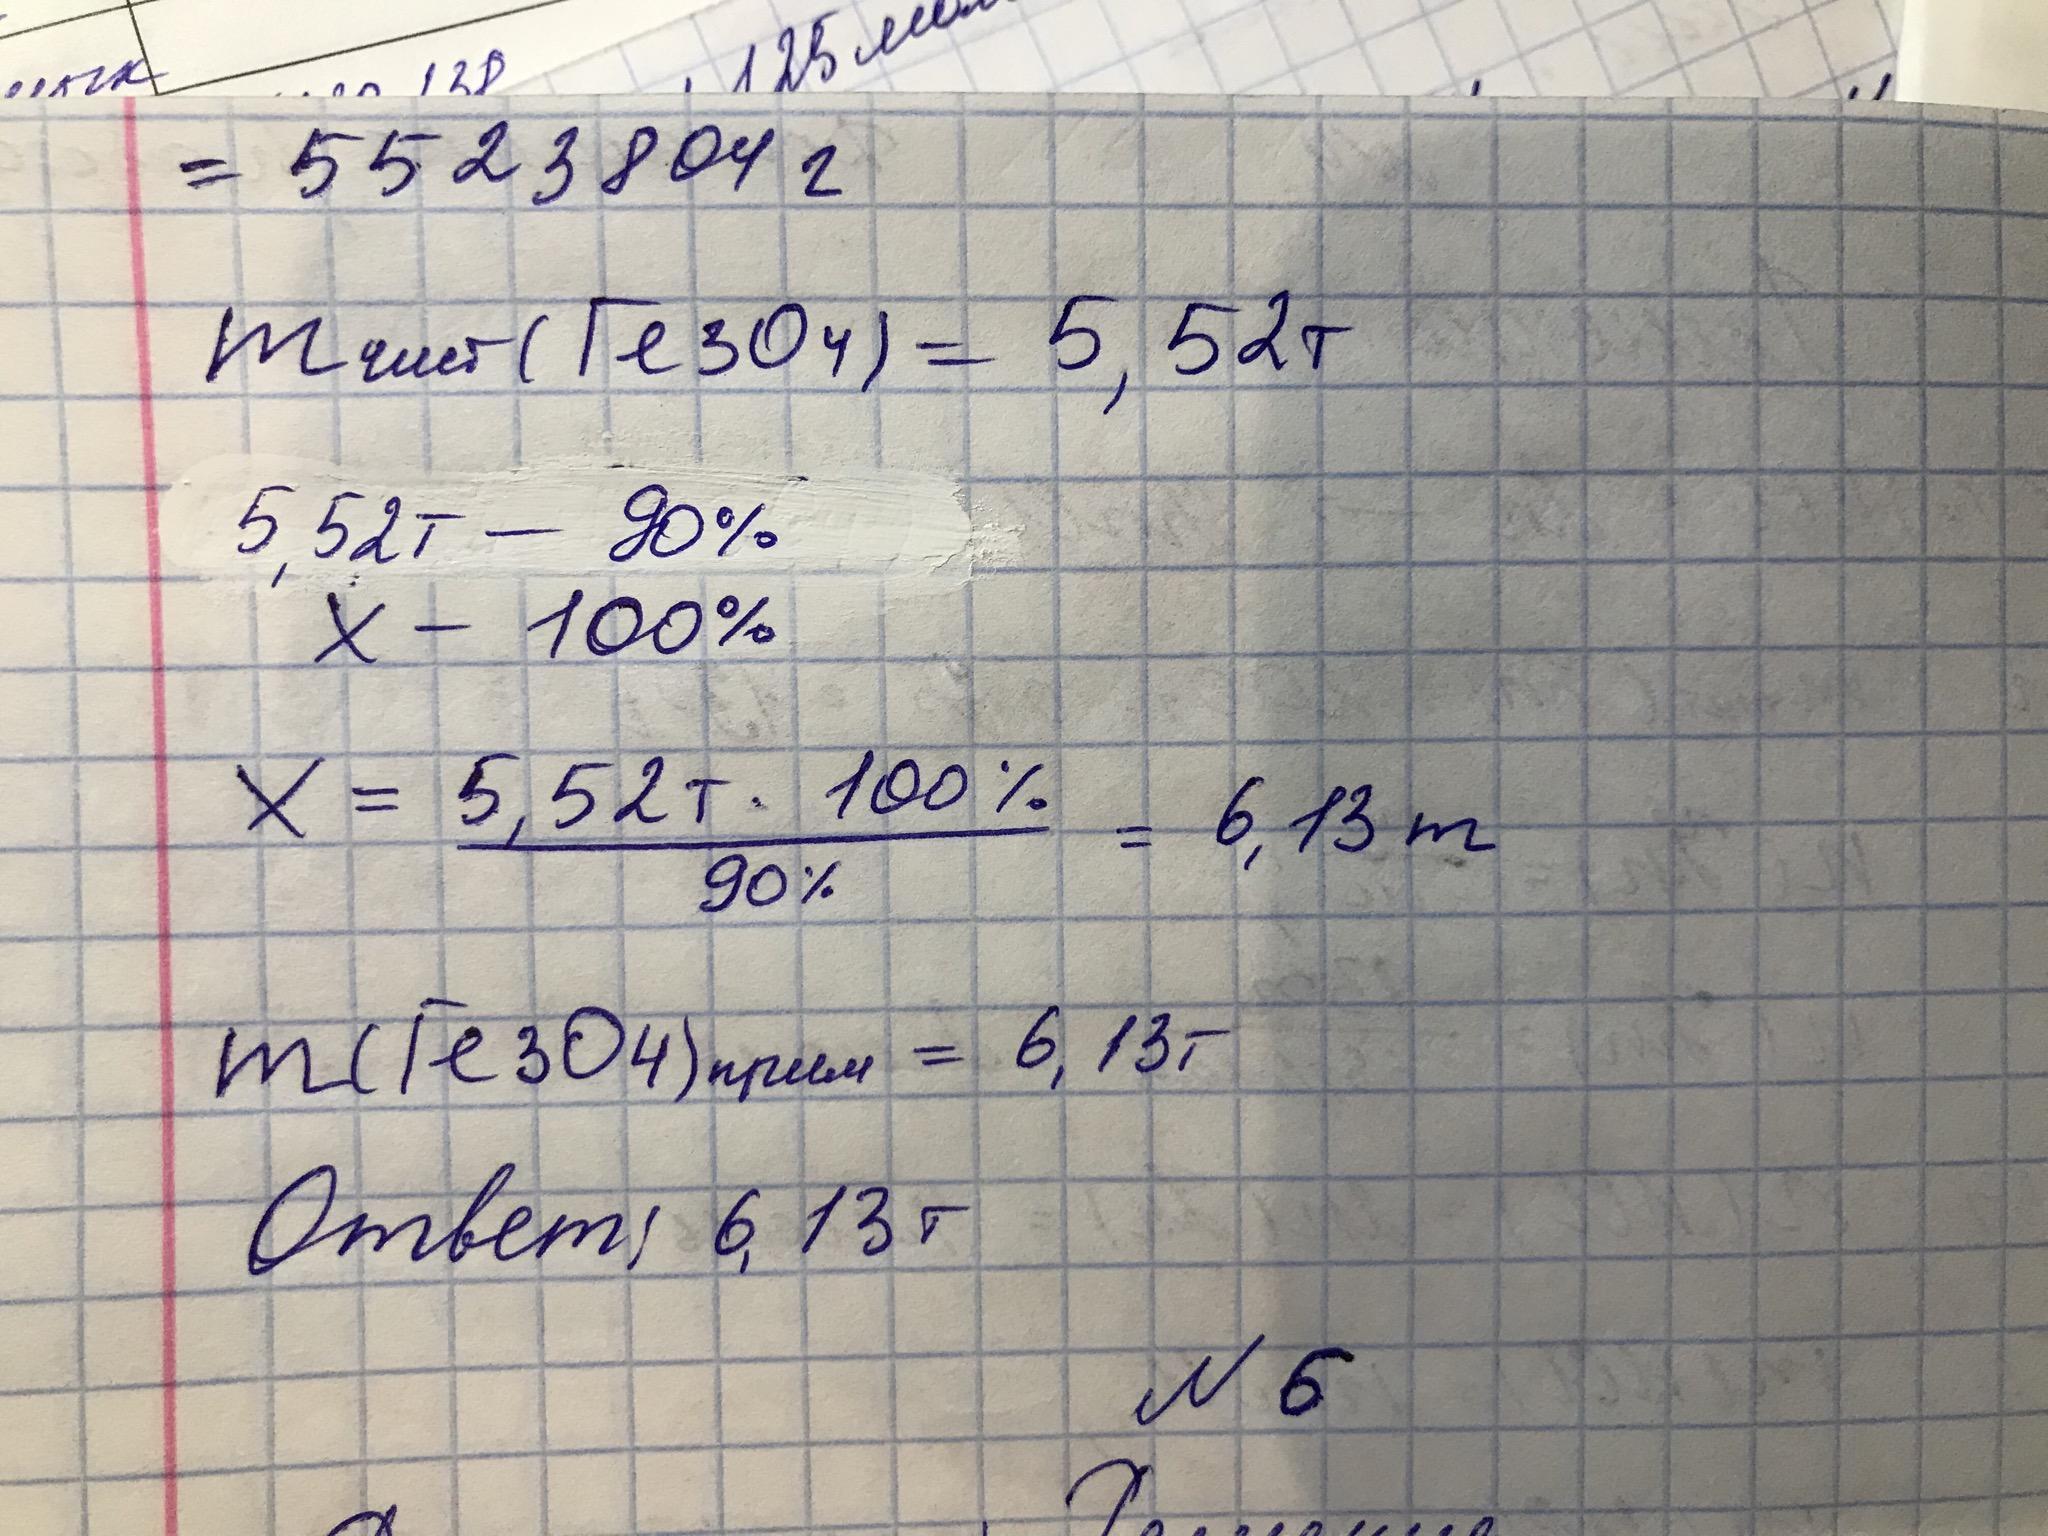 125
= 5523804 г
m чист (Fe3O4) = 5,52т
5,52т — 90%
X — 100%
X = 5,52т · 100% / 90% = 6,13 т
m(Fe3O4) прим = 6,13т
Ответ: 6,13т
N 5